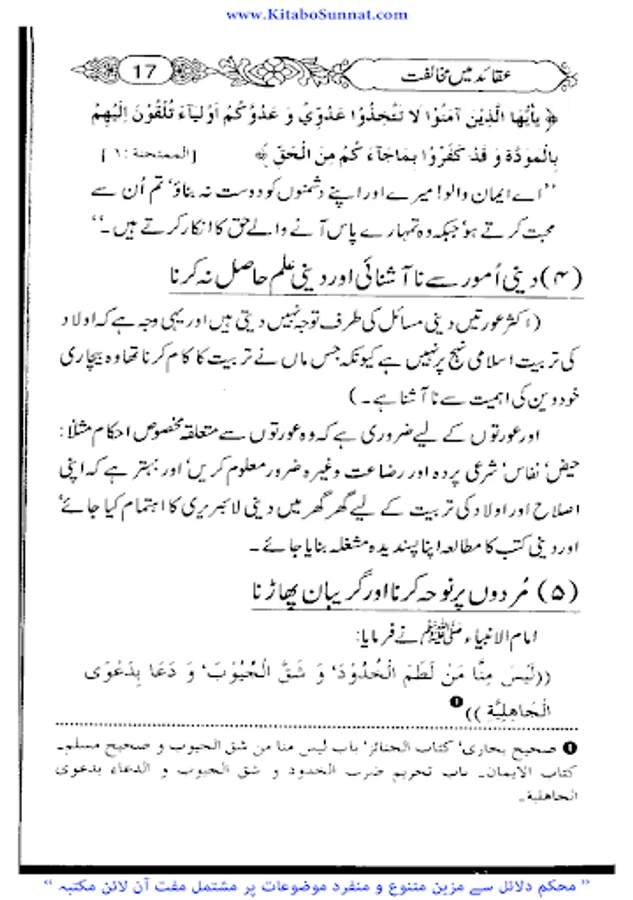 www.KitaboSunnat.com
عقائد میں مخالفت
17
﴿ یٰأَیُّهَا الَّذِیْنَ آمَنُوْا لَا تَتَّخِذُوْا عَدُوِّیْ وَ عَدُوَّكُمْ اَوْلِیَآءَ تُلْقُوْنَ اِلَیْهِمْ
بِالْمَوَدَّةِ وَ قَدْ كَفَرُوْا بِمَاجَآءَ كُمْ مِنَ الْحَقِّ ﴾ [الممتحنة : ١]
’’اے ایمان والو! میرے اور اپنے دشمنوں کو دوست نہ بناؤ‘ تم اُن سے
محبت کرتے ہو‘ جبکہ وہ تمہارے پاس آنے والے حق کا انکار کرتے ہیں۔‘‘
(۴) دینی اُمور سے نا آشنائی اور دینی علم حاصل نہ کرنا
(اکثر عورتیں دینی مسائل کی طرف توجہ نہیں دیتی ہیں اور یہی وجہ ہے کہ اولاد
کی تربیت اسلامی نہج پر نہیں ہے کیونکہ جس ماں نے تربیت کا کام کرنا تھا وہ بیچاری
خود دین کی اہمیت سے نا آشنا ہے۔)
اور عورتوں کے لیے ضروری ہے کہ وہ عورتوں سے متعلقہ مخصوص احکام مثلاً:
حیض‘ نفاس‘ شرعی پردہ اور رضاعت وغیرہ ضرور معلوم کریں‘ اور بہتر ہے کہ اپنی
اصلاح اور اولاد کی تربیت کے لیے گھر گھر میں دینی لائبریری کا اہتمام کیا جائے‘
اور دینی کتب کا مطالعہ اپنا پسندیدہ مشغلہ بنایا جائے۔
(۵) مُردوں پر نوحہ کرنا اور گریبان پھاڑنا
امام الانبیاء ﷺ نے فرمایا:
((لَیْسَ مِنَّا مَنْ لَطَمَ الْخُدُوْدَ‘ وَ شَقَّ الْجُیُوْبَ‘ وَ دَعَا بِدَعْوَی
الْجَاهِلِیَّةِ))❶
❶ صحیح بخاری‘ کتاب الجنائز‘ باب لیس منا من شق الجیوب و صحیح مسلم۔
کتاب الایمان۔ باب تحریم ضرب الخدود و شق الجیوب و الدعاء بدعوی
الجاهلیة۔
’’ محکم دلائل سے مزین متنوع و منفرد موضوعات پر مشتمل مفت آن لائن مکتبہ ‘‘